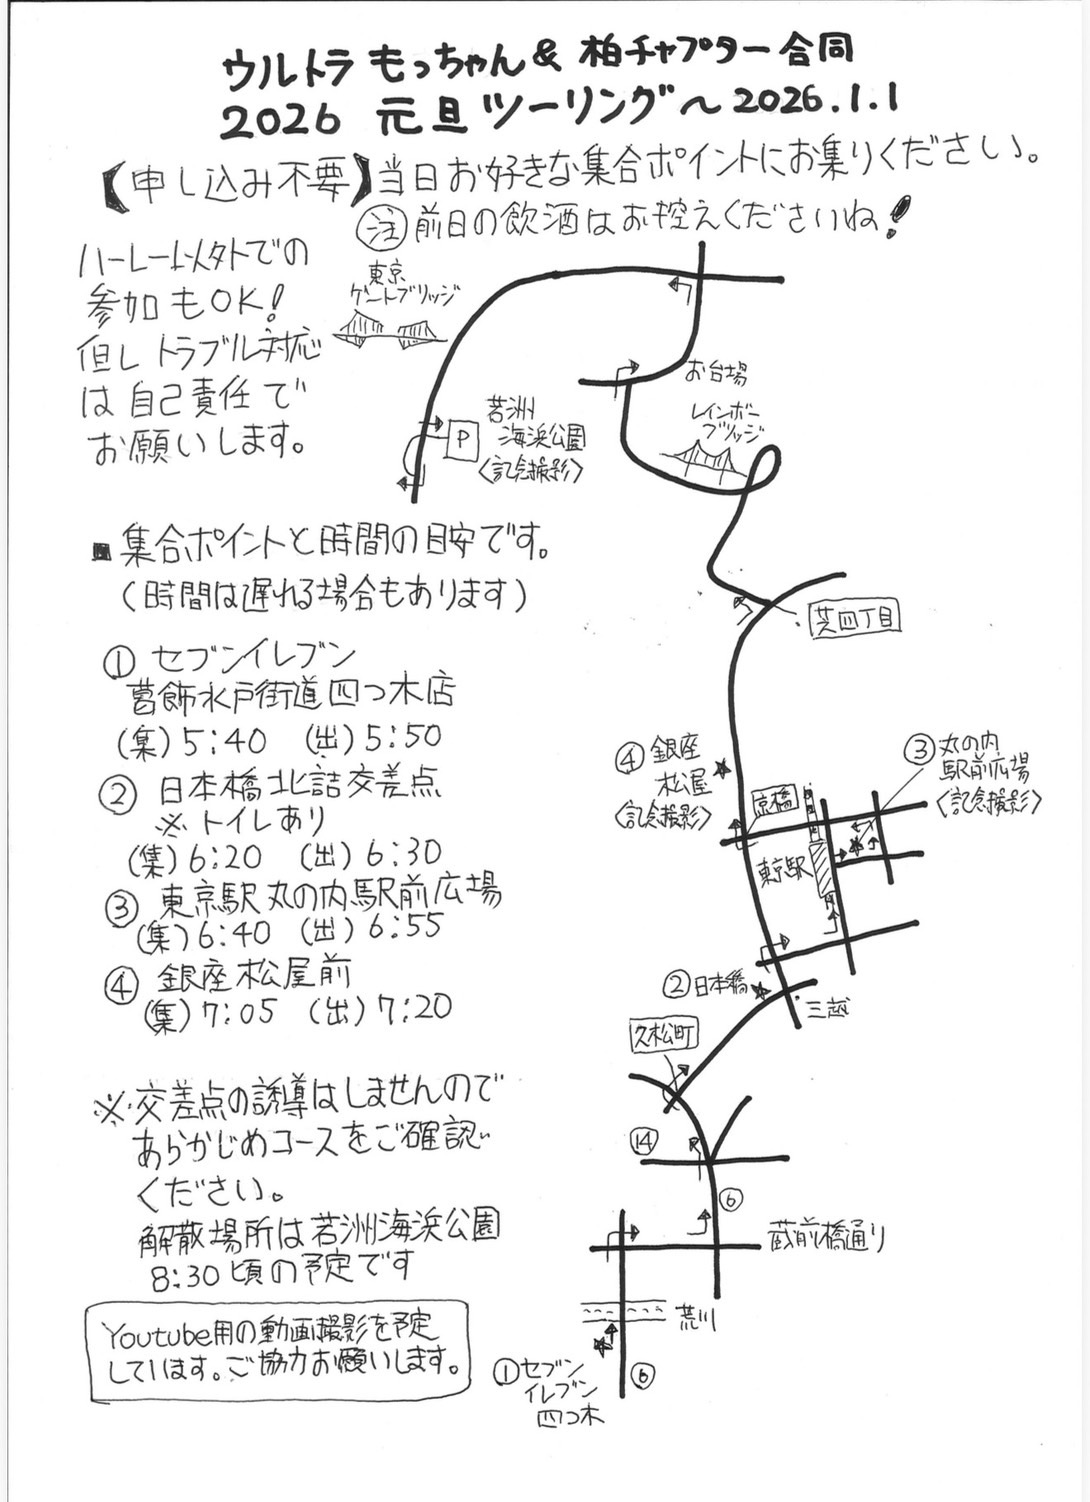 ウルトラ もっちゃん & 柏チャプター合同
2026 元旦ツーリング〜2026.1.1
【申し込み不要】当日お好きな集合ポイントにお集りください。
注 前日の飲酒はお控えくださいね!
ハーレー以外での
参加もOK!
但しトラブル対応
は自己責任で
お願いします。
東京
ゲートブリッジ
お台場
レインボー
ブリッジ
P
若洲
海浜公園
〈記念撮影〉
■ 集合ポイントと時間の目安です。
(時間は遅れる場合もあります)
芝四丁目
① セブンイレブン
葛飾水戸街道四つ木店
(集)5:40 (出)5:50
② 日本橋北詰交差点
※トイレあり
(集)6:20 (出)6:30
③ 東京駅丸の内駅前広場
(集)6:40 (出)6:55
④ 銀座松屋前
(集)7:05 (出)7:20
④ 銀座
松屋
〈記念撮影〉
③ 丸の内
駅前広場
〈記念撮影〉
京橋
東京駅
② 日本橋
三越
久松町
⑭
⑥
蔵前橋通り
荒川
① セブン
イレブン
四つ木
⑥
※交差点の誘導はしませんので
あらかじめコースをご確認
ください。
解散場所は若洲海浜公園
8:30頃の予定です
Youtube用の動画撮影を予定
しています。ご協力お願いします。